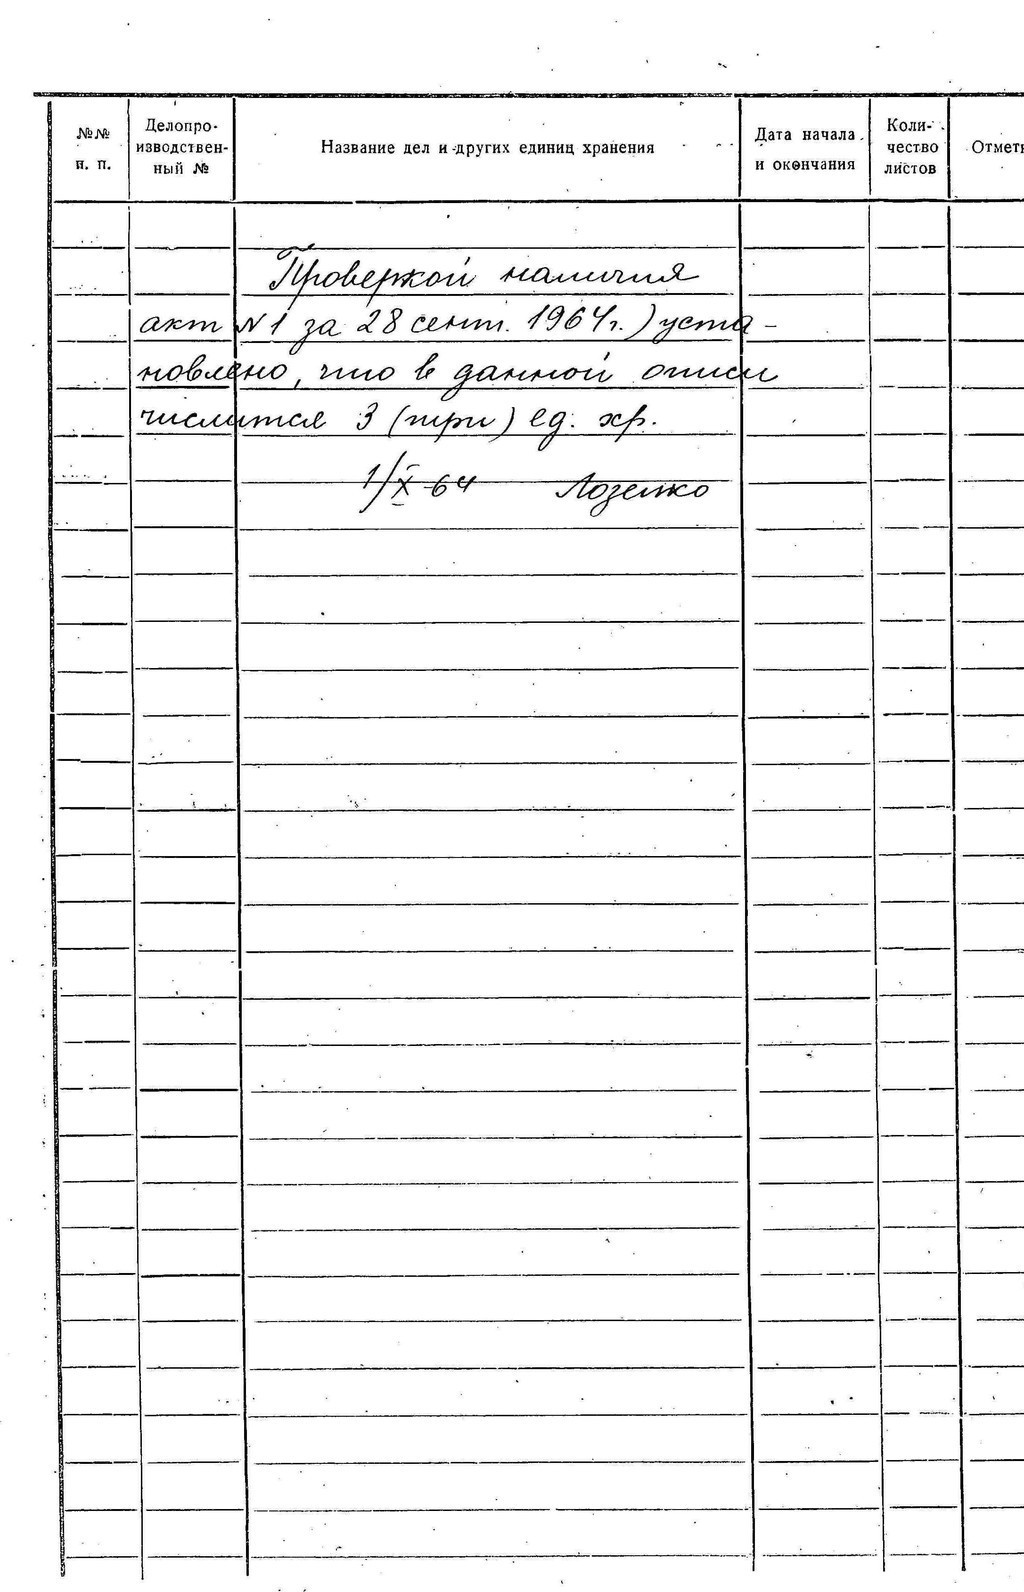 №№ н. п.
Делопро-
изводствен-
ный №
Название дел и других единиц хранения
Дата начала
и окончания
Коли-
чество
листов
Отмет
Проверкой наличия
акт N 1 за 28 сент. 1964 г.) уста-
новлено, что в данной описи
числится 3 (три) ед. хр.
1/X-64